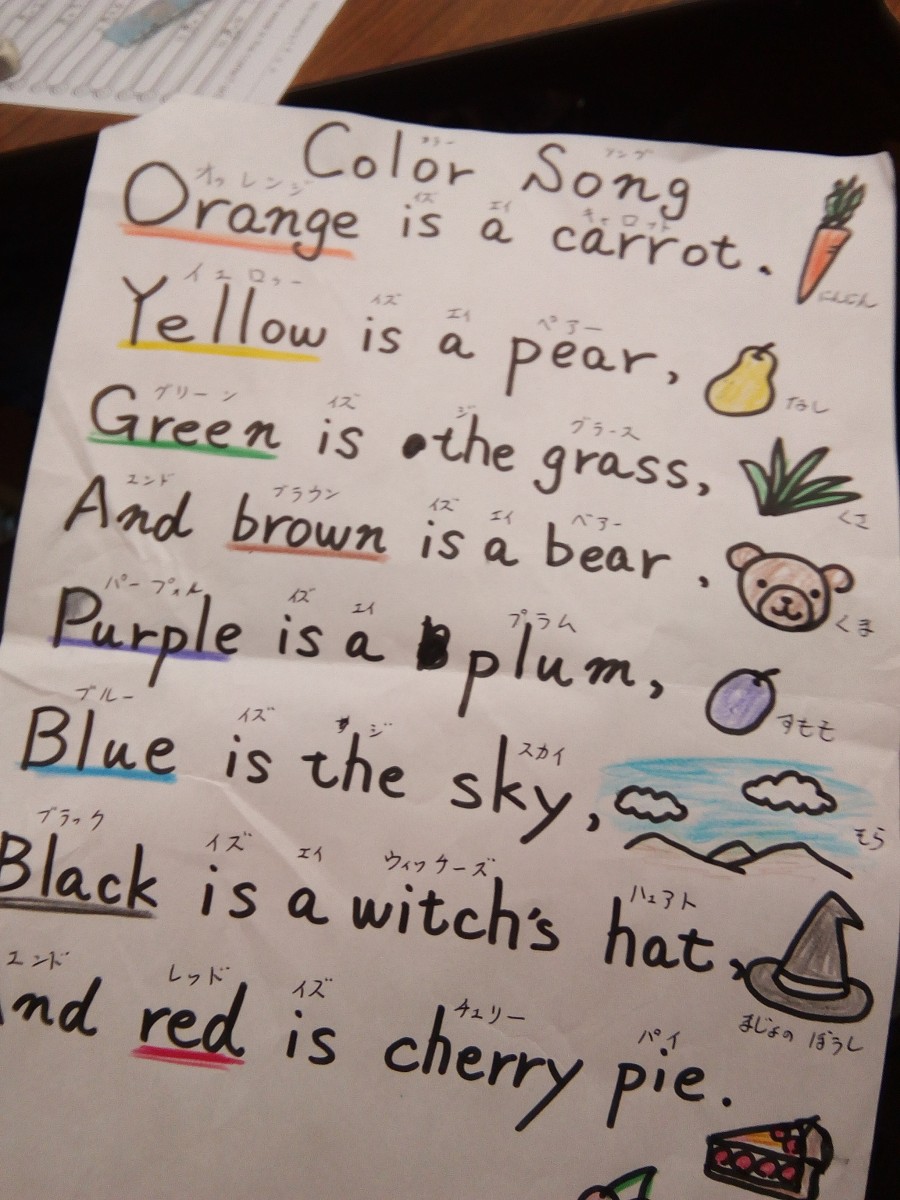 カラー ソング
Color Song
オゥレンジ イズ エイ キャロット
Orange is a carrot.
にんじん
イエロゥー イズ エイ ペアー
Yellow is a pear,
なし
グリーン イズ ジ グラース
Green is the grass,
くさ
エンド ブラウン イズ エイ ベアー
And brown is a bear,
くま
パープィル イズ エイ プラム
Purple is a plum,
すもも
ブルー イズ ジ スカイ
Blue is the sky,
そら
ブラック イズ エイ ウィッチーズ ハェアト
Black is a witch's hat,
まじょの ぼうし
エンド レッド イズ チェリー パイ
And red is cherry pie.